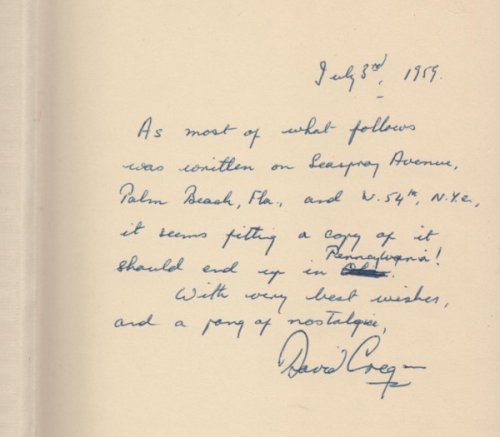 July 3rd, 1959.
As most of what follows
was written on Seaspray Avenue,
Palm Beach, Fla., and W. 54th, N.Y.C.,
it seems fitting a copy of it
Pennsylvana!
should end up in
With very best wishes,
and a pang of nostalgia,
David